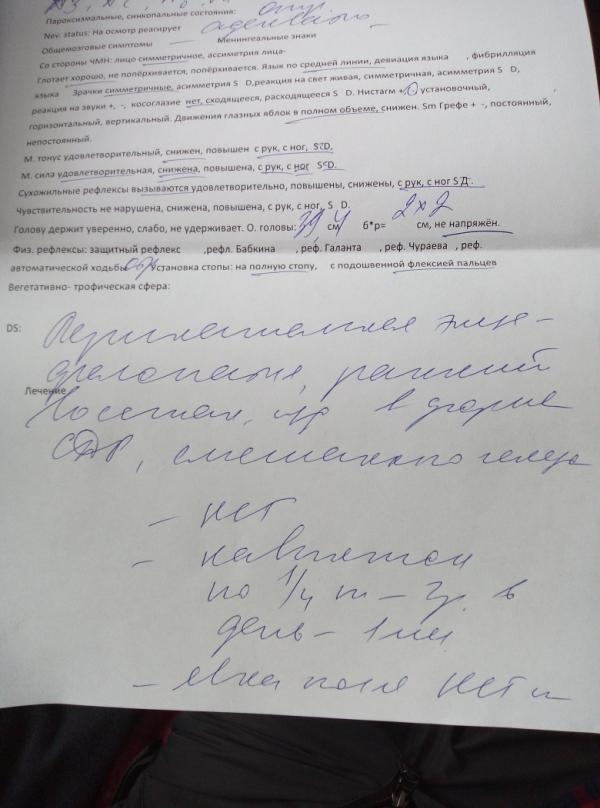 Пароксизмальные, синкопальные состояния: отр
Nev. status: На осмотр реагирует адекватно
Общемозговые симптомы — Менингеальные знаки
Со стороны ЧМН: лицо симметричное, ассиметрия лица-
Глотает хорошо, не попёрхивается, попёрхивается. Язык по средней линии, девиация языка , фибрилляция
языка Зрачки симметричные, асимметрия S D,реакция на свет живая, симметричная, асимметрия S D,
реакция на звуки +, -, косоглазие нет, сходящееся, расходящееся S D. Нистагм +,- установочный,
горизонтальный, вертикальный. Движения глазных яблок в полном объеме, снижен. Sm Грефе + -, постоянный,
непостоянный.
М. тонус удовлетворительный, снижен, повышен с рук, с ног, S=D,
М. сила удовлетворительная, снижена, повышена, с рук, с ног S=D.
Сухожильные рефлексы вызываются удовлетворительно, повышены, снижены, с рук, с ног S D .
Чувствительность не нарушена, снижена, повышена, с рук, с ног, S D.
Голову держит уверенно, слабо, не удерживает. О. головы: 39,4 см, б*р= 2х2 см, не напряжён.
Физ. рефлексы: защитный рефлекс ,рефл. Бабкина , реф. Галанта , реф. Чураева , реф.
автоматической ходьбы Установка стопы: на полную стопу, с подошвенной флексией пальцев
Вегетативно- трофическая сфера:
DS: Перинатальная энце-
фалопатия, ранний
Лечение
восстан. пр в форме
СДР, смешанного генеза
– НСГ
– кавинтон
по 1/4 т – 2р. в
день – 1 мес
– явка после НСГ